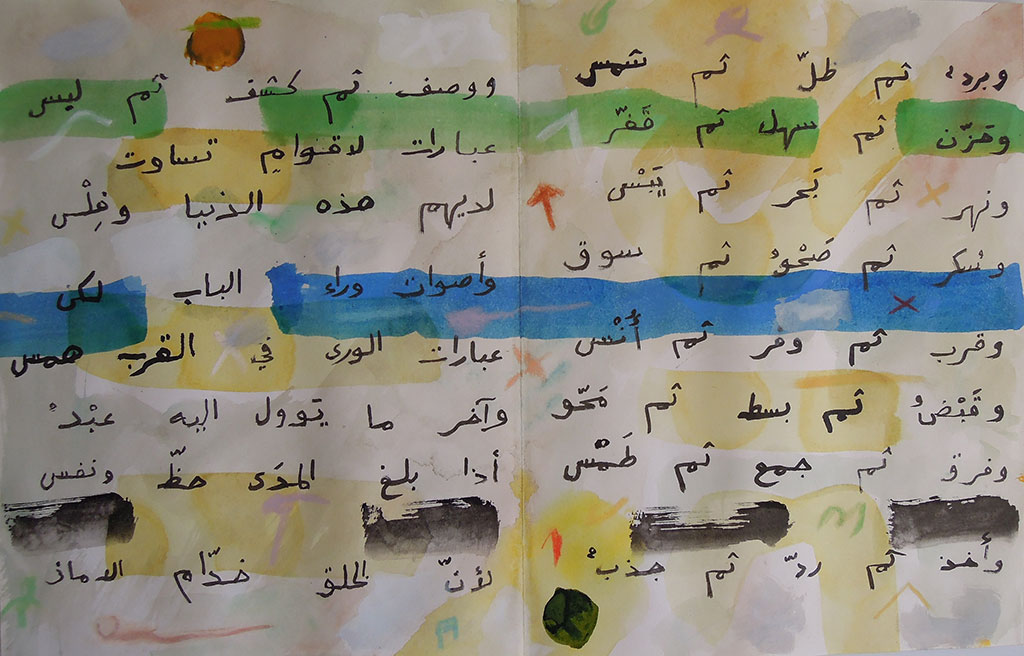 وبردٌ ثم ظلّ ثم شمس
وحَزْن ثم سهل ثم قَفْر
ونهر ثم بَحر ثم يَبْس
وسُكر ثم صَحْوٌ ثم سوق
وقرب ثم وفر ثم أُنْس
وقَبْضٌ ثم بسط ثم مَحْو
وفرق ثم جمع ثم طَمْس
وأخذ ثم ردّ ثم جذبٌ
ووصف ثم كشف ثم لبس
عبارات لاقوامٍ تساوت
لديهم هذه الدنيا وفِلْس
وأصوات وراء الباب لكن
عبارات الورى في القرب همس
وآخر ما يؤول اليه عبْدٌ
أذا بلغ المدَى حظّ ونفس
لأنّ الخلق خدّام